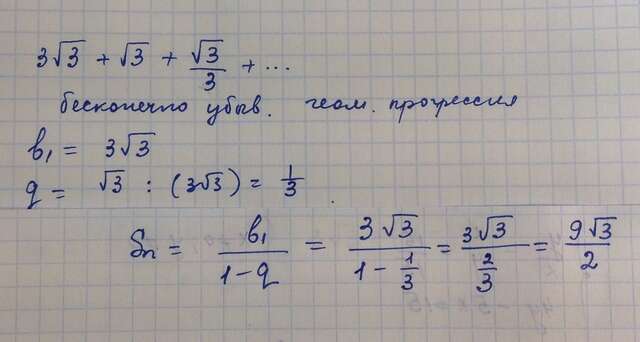 3√3 + √3 + √3/3 + ...
бесконечно убыв. геом. прогрессия
b₁ = 3√3
q = √3 : (3√3) = 1/3
Sn = b₁/(1-q) = 3√3/(1 - 1/3) = 3√3/(2/3) = 9√3/2